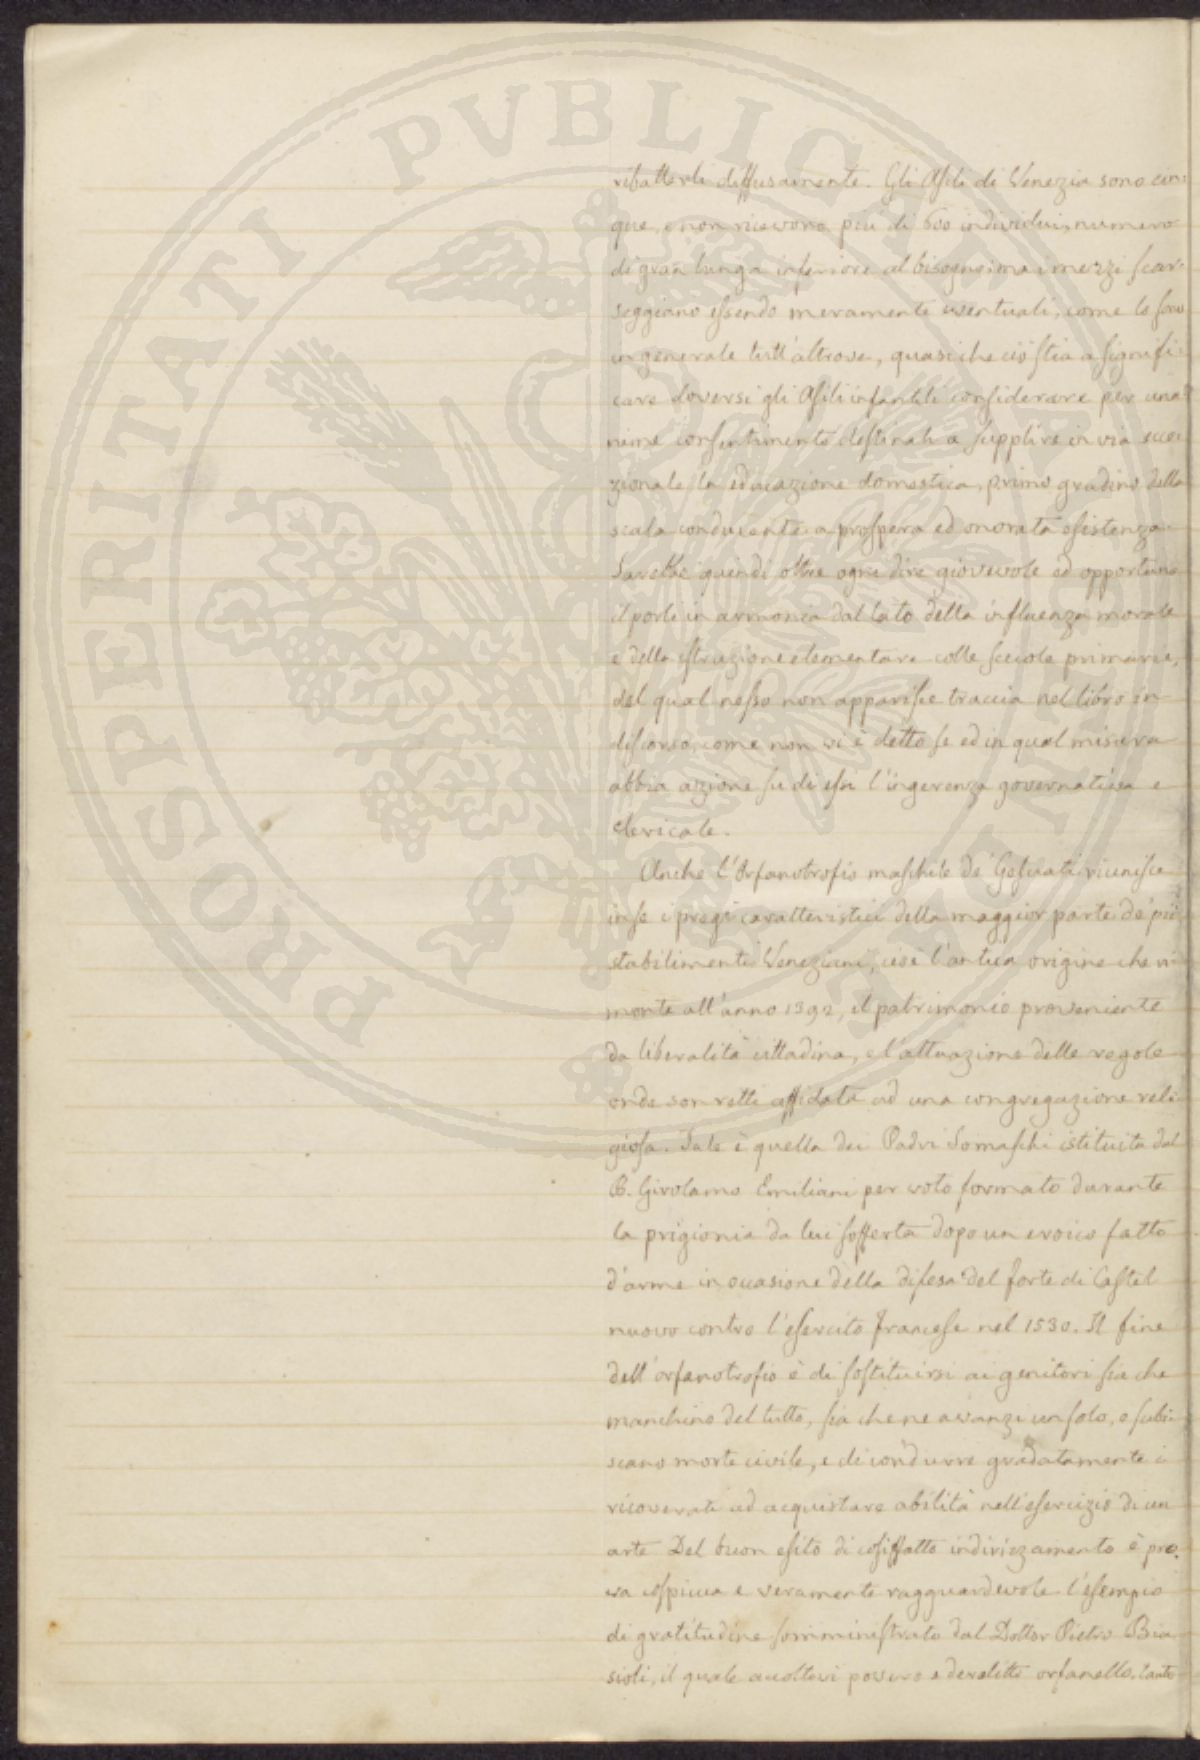 PROSPERITATI PVBLICAE AVGENDAE
ribatterli diffusamente. Gli Asili di Venezia sono cin-
que, e non ricevono più di 600 individui, numero
di gran lunga inferiore al bisogno; ma i mezzi scar-
seggiano essendo meramente eventuali, come lo sono
in generale tutt'altrove, quasi che ciò stia a signifi-
care doversi gli Asili infantili considerare per una-
nime consentimento destinati a supplire in via ecce-
zionale la educazione domestica, primo gradino della
scala conducente a prospera ed onorata esistenza.
Sarebbe quindi oltre ogni dire giovevole ed opportuno
il porli in armonia dal lato della influenza morale
e della istruzione elementare colle scuole primarie,
del qual nesso non apparisce traccia nel libro in
discorso, come non vi è detto se ed in qual misura
abbia azione su di essi l'ingerenza governativa e
clericale.
Anche l'Orfanotrofio maschile de' Gesuati riunisce
in se i pregi caratteristici della maggior parte de' pii
stabilimenti Veneziani, cioè l'antica origine che ri-
monta all'anno 1392, il patrimonio proveniente
da liberalità cittadina, e l'attuazione delle regole
onde son retti affidata ad una congregazione reli-
giosa. Tale è quella dei Padri Somaschi istituita dal
B. Girolamo Emiliani per voto formato durante
la prigionia da lui sofferta dopo un eroico fatto
d'arme in occasione della difesa del forte di Castel
nuovo contro l'esercito francese nel 1530. Il fine
dell'orfanotrofio è di sostituirsi ai genitori sia che
manchino del tutto, sia che ne avanzi un solo, o subi-
scano morte civile, e di condurre gradatamente i
ricoverati ad acquistare abilità nell'esercizio di un
arte. Del buon esito di cosiffatto indirizzamento è pro-
va cospicua e veramente ragguardevole l'esempio
di gratitudine somministrato dal Dottor Pietro Bia-
sioli, il quale accoltovi povero e derelitto orfanello, tanto